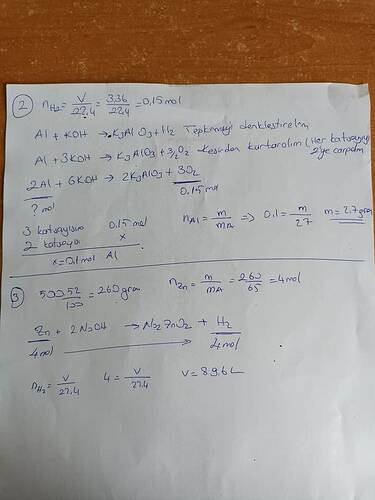 2 nH2 = V/22,4 = 3,36/22,4 = 0,15 mol
Al + KOH → K3AlO3 + H2 Tepkimeyi denkleştirelim
Al + 3KOH → K3AlO3 + 3/2O2 Kesirden kurtaralım (Her katsayıyı
2'ye çarpalım
2Al + 6KOH → 2K3AlO3 + 3O2
? mol 0.15 mol
3 katsayısı 0.15 mol
2 katsayısı x
x = 0.1 mol Al
nAl = m/mA ⇒ 0.1 = m/27 m = 2.7 gram
3 500.52/100 = 260 gram nZn = m/mA = 260/65 = 4 mol
Zn + 2NaOH → Na2ZnO2 + H2
4 mol → 4 mol
nH2 = V/22,4 4 = V/22.4 V = 89.6 L